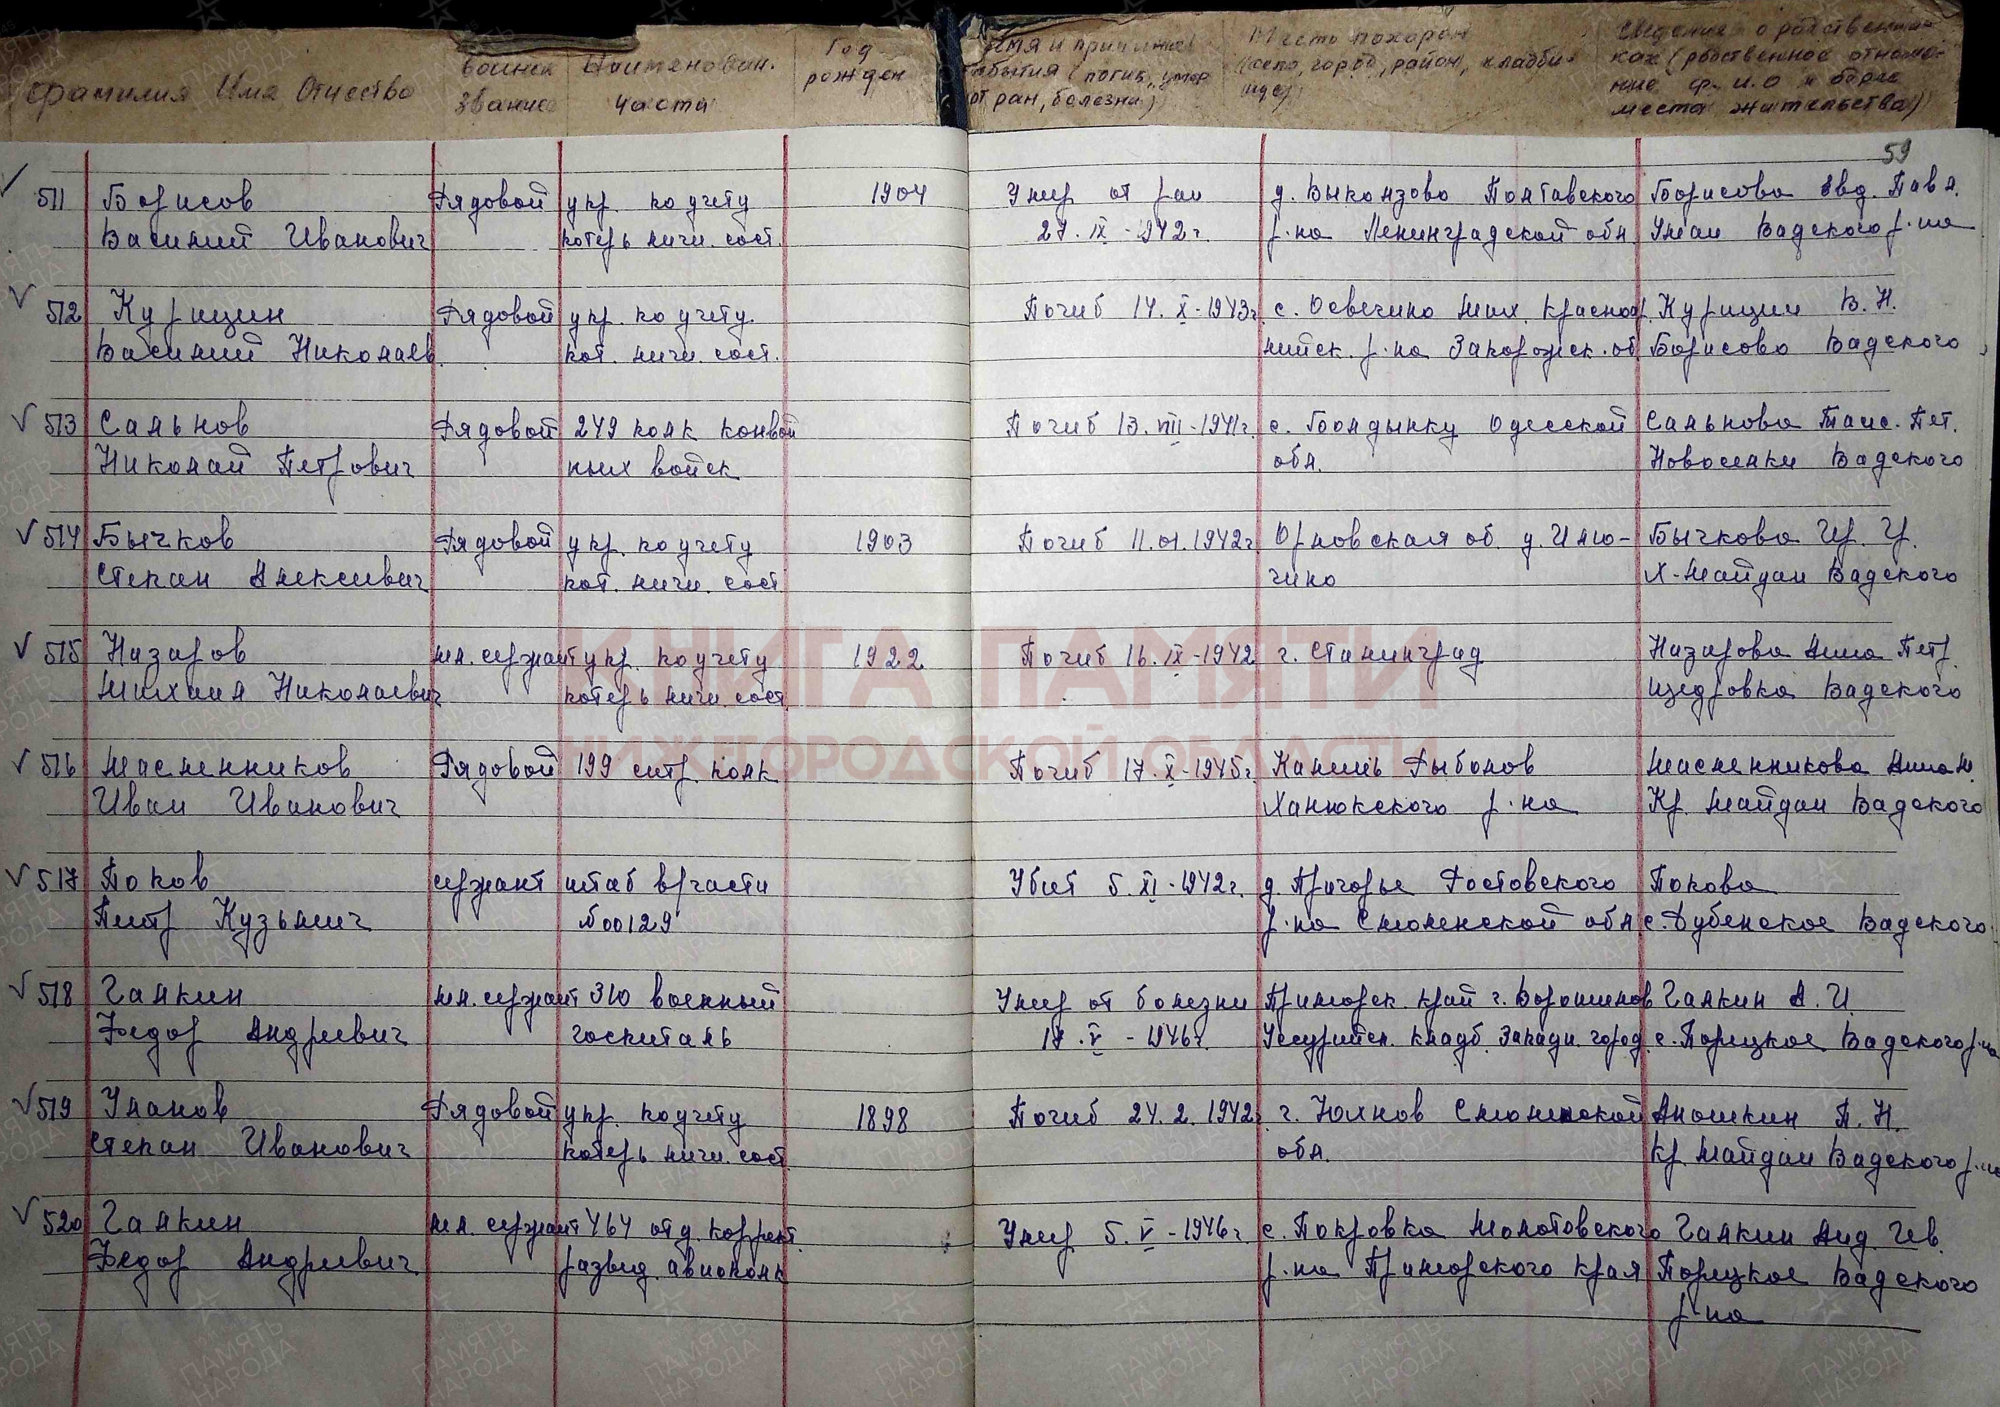 Фамилия Имя Отчество
воинск звание
Наименован. части
Год рожден
Время и причина
события (погиб, умер
от ран, болезни)
Место похорон
(село, город, район, кладби-
ще)
Сведения о родственни-
ках (родственное отноше-
ние ф. и. о и адрес
места жительства)
59
511 Борисов Рядовой упр. по учету 1904 Умер от ран д. Выконзово Полтавского Борисова Евд. Павл.
Василий Иванович потерь личн. сост. 27. IX - 1942 г. р-на Ленинградской обл. Умай Вадского р-на
512 Курицин Рядовой упр. по учету. Погиб 14. X - 1943 г. с. Освечино Мих. Красноар. Курицин В. Н.
Василий Николаев. пот. личн. сост. мейск. р-на Запорожск. об Борисово Вадского
513 Сальнов Рядовой 249 полк конвой Погиб 13. VIII - 1941 г. с. Болдынку Одесской Сальнова Таис. Пет.
Николай Петрович ных войск обл. Новоселки Вадского
514 Бычков Рядовой упр. по учету 1903 Погиб 11.01.1942 г. Орловская об. д. Илю- Бычкова Ир. И.
Степан Алексеевич пот. личн. сост. чино Х-Майдан Вадского
515 Назаров мл. сержант упр. по учету 1922 Погиб 16. IX - 1942 г. Сталинград Назарова Анна Петр.
Михаил Николаевич потерь личн. сост. Щедровка Вадского
516 Масленников Рядовой 199 стр. полк Погиб 17. X - 1945 г. Камень Рыболов Масленникова Анна М.
Иван Иванович Ханкюкского р-на Кр. Майдан Вадского
517 Попов сержант штаб в/части Убит 5. XI - 1942 г. д. Пригорье Ростовского Попова
Петр Кузьмич №00129 р-на Смоленской обл с. Дубенское Вадского
518 Галкин мл. сержант 310 военный Умер от болезни Приморск. край г. Ворошилов Галкин А. И.
Федор Андреевич госпиталь 17. V - 1946 г. Уссурийск. кладб. Западн. город. с. Порецкое Вадского р-на
519 Уланов Рядовой упр. по учету 1898 Погиб 24. 2. 1942 г. г. Юхнов Смоленской Аношкин П. Н.
Степан Иванович потерь личн. сост. обл. Кр. Майдан Вадского р-на
520 Галкин мл. сержант 464 отд. коррект. Умер 5. V - 1946 г. с. Покровка Молотовского Галкин Анд. Ив.
Федор Андреевич развед. авиополк р-на Приморского края Порецкое Вадского
р-на
КНИГА ПАМЯТИ
НИЖЕГОРОДСКОЙ ОБЛАСТИ
ПАМЯТЬ
НАРОДА